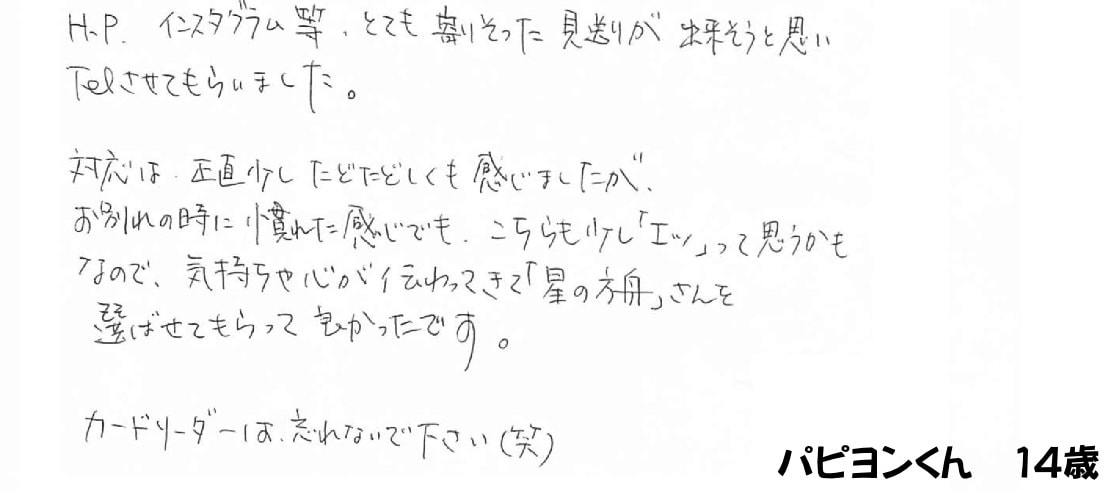 H.P. インスタグラム等、とても寄りそった見送りが出来そうと思い
Telさせてもらいました。
対応は、正直少したどたどしくも感じましたが、
お別れの時に慣れた感じでも、こちらも少し「エッ」って思うかも
なので、気持ちや心が伝わってきて「星の方舟」さんを
選ばせてもらって良かったです。
カードリーダーは、忘れないで下さい(笑)
パピヨンくん 14歳